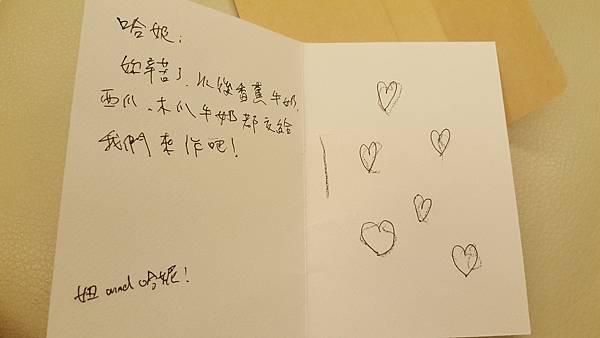 哈妮:
妳辛苦了、以後香蕉牛奶、
西瓜、木瓜牛奶都交給
我們來作吧!
妞 and 哈妮!